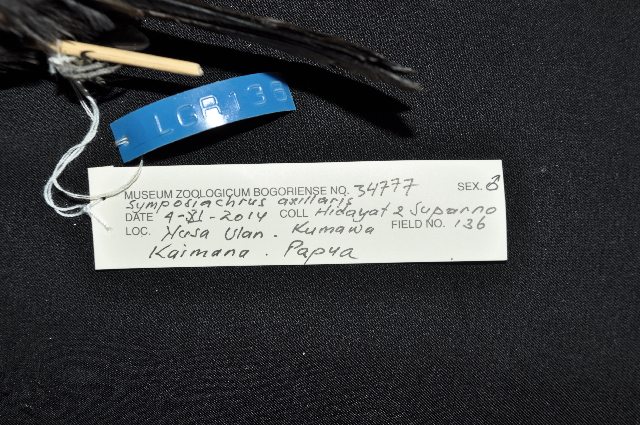 LGR 136
MUSEUM ZOOLOGICUM BOGORIENSE NO. 34777 SEX. ♂
Symposiachrus axillaris
DATE 4-XI-2014 COLL Hidayat & Suparno
LOC. Husa Ulan. Kumawa FIELD NO. 136
Kaimana. Papua